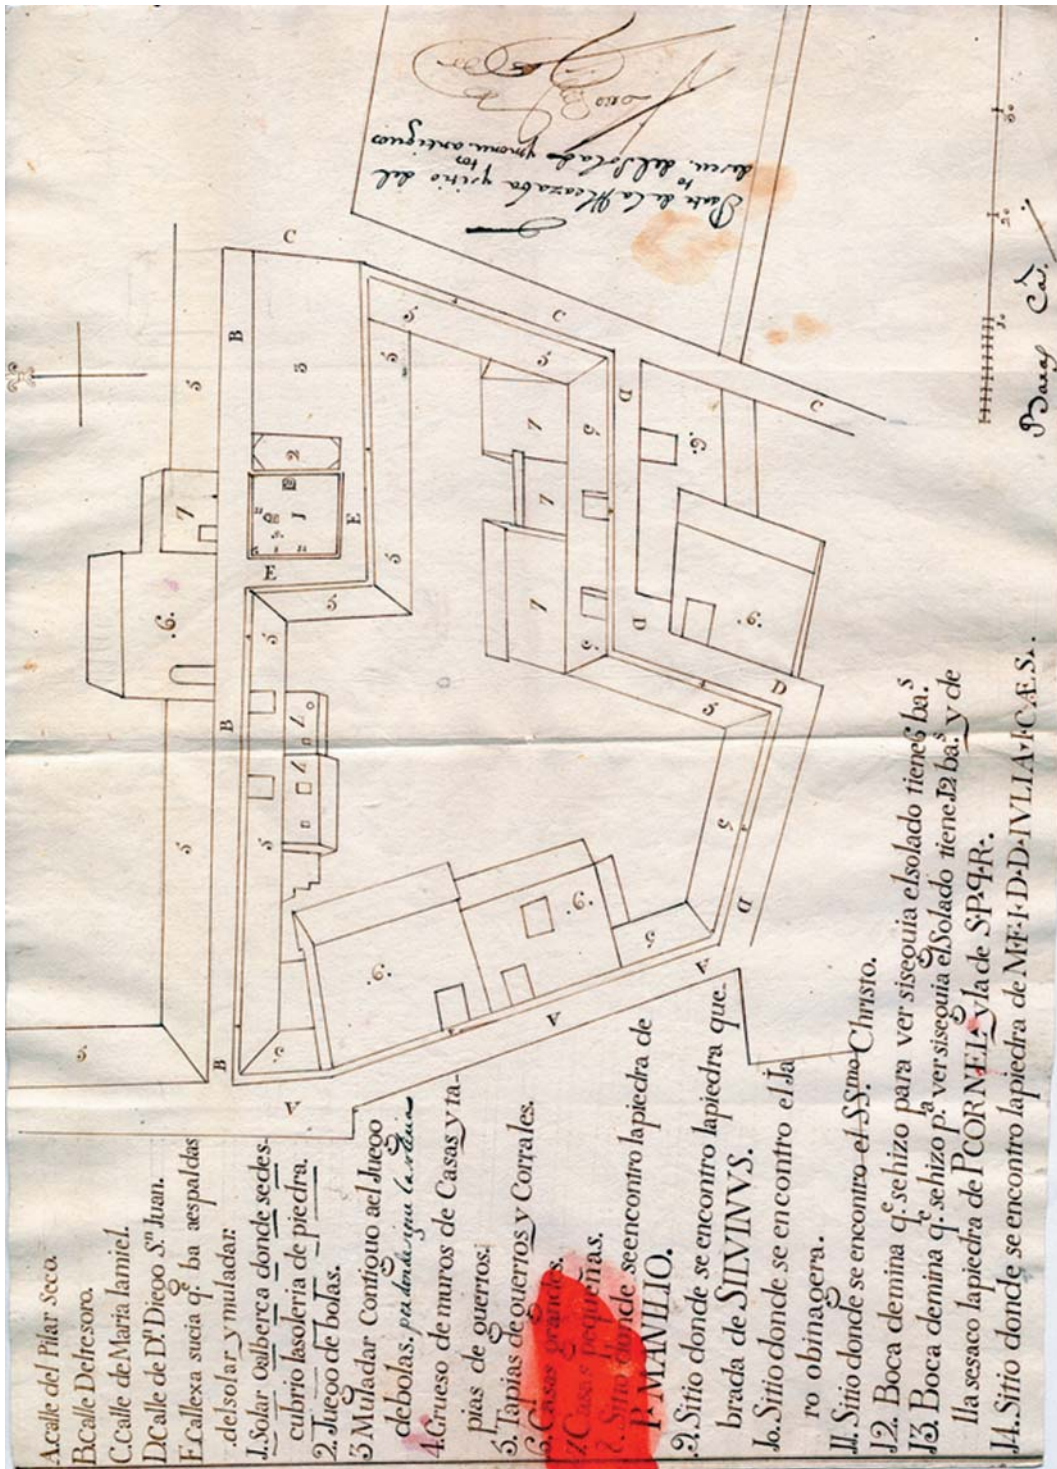 A calle del Pilar Seco.
B. calle Deltesoro.
C. calle de Maria la miel.
D. Calle de Dn. Diego Sn. Juan.
E. Callexa sucia q. ba aespaldas
del solar y muladar.
1. Solar o alberca donde se des-
cubrio la soleria de piedra.
2. Juego de bolas.
3 Muladar Contiguo ael Juego
de bolas. por donde sigue la
4. Grueso de muros de Casas y ta-
pias de guerros.
5. Tapias de guerros y Corrales.
6. Casas grandes.
7 Casas pequeñas.
8. Sitio donde se encontro la piedra de
P. MANILIO.
9. Sitio donde se encontro la piedra que-
brada de SILVINVS.
10. Sitio donde se encontro el Ja
ro obinagera.
11. Sitio donde se encontro el SSmo. Christo.
12. Boca de mina qe. se hizo para ver si seguia el solado tiene 6 bas.
13. Boca de mina qe. se hizo pa. ver si seguia el Solado tiene 12 bas. y de
lla se saco la piedra de P CORNEL. y la de S.P.q.R.
14. Sitio donde se encontro la piedra de M.F.I.D.D.IVLIA.I.CÆS.
Parte de la Alcazaba y sitio del
descu.to del Solado y monu.tos antiguos
C
B
5
3
2
7
1
E
E
6.
5
B
5
5
B
A
A
A
D
D
D
D
C
C
6.
6.
7
7
7
5
5
5
5
6.
6.
10
20
30